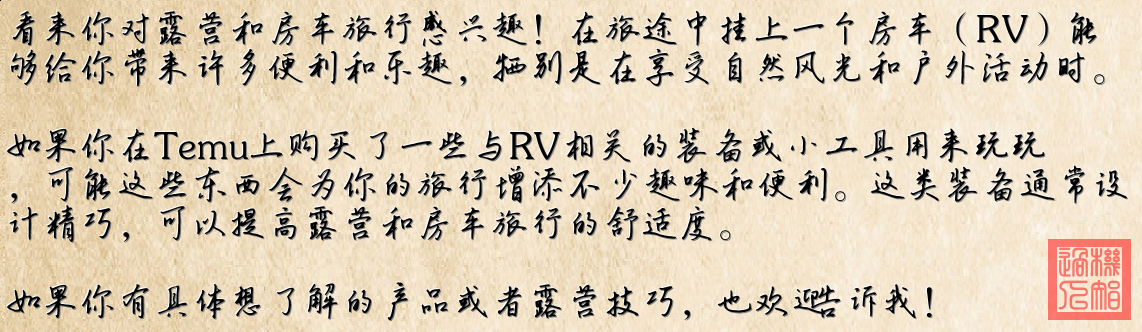 看来你对露营和房车旅行感兴趣！在旅途中挂上一个房车（RV）能
够给你带来许多便利和乐趣，特别是在享受自然风光和户外活动时。
如果你在Temu上购买了一些与RV相关的装备或小工具用来玩玩
，可能这些东西会为你的旅行增添不少趣味和便利。这类装备通常设
计精巧，可以提高露营和房车旅行的舒适度。
如果你有具体想了解的产品或者露营技巧，也欢迎告诉我！